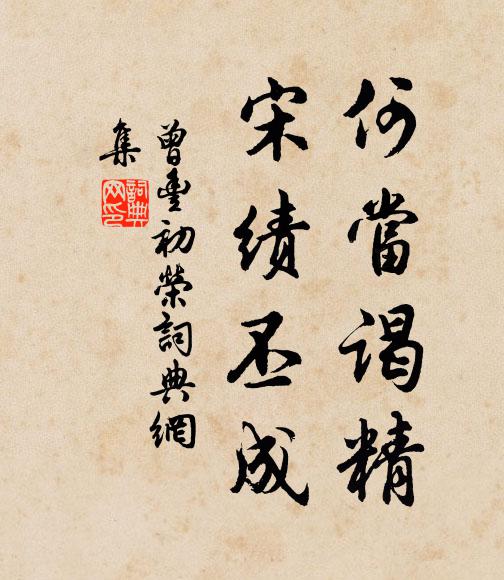 何當謁精
宋績丕成
曾豐初榮詞典網
集
詞典
网印